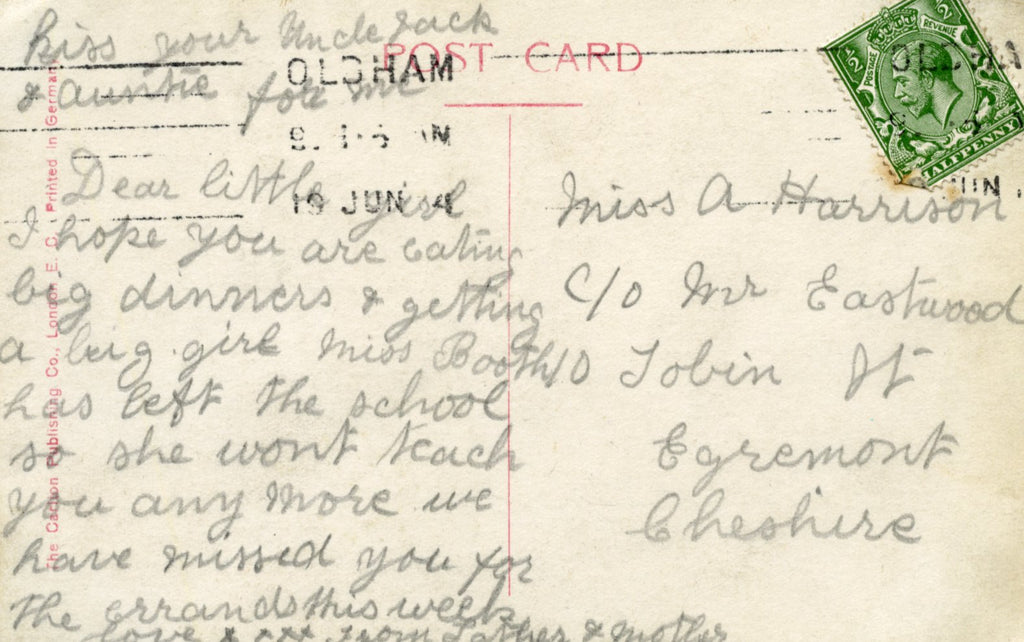 Kiss your Uncle Jack
& Auntie for me
POST CARD
OLDHAM
19 JUN 14
Dear little girl
I hope you are eating
big dinners & getting
a big girl Miss Booth
has left the school
so she wont teach
you any more we
have missed you for
the errands this week
love & xxx from Father & Mother
Miss A Harrison
C/o Mr Eastwood
10 Tobin St
Egremont
Cheshire
The Caxton Publishing Co., London, E. C. Printed in German
POSTAGE REVENUE
HALFPENNY
OLDHA
JUN